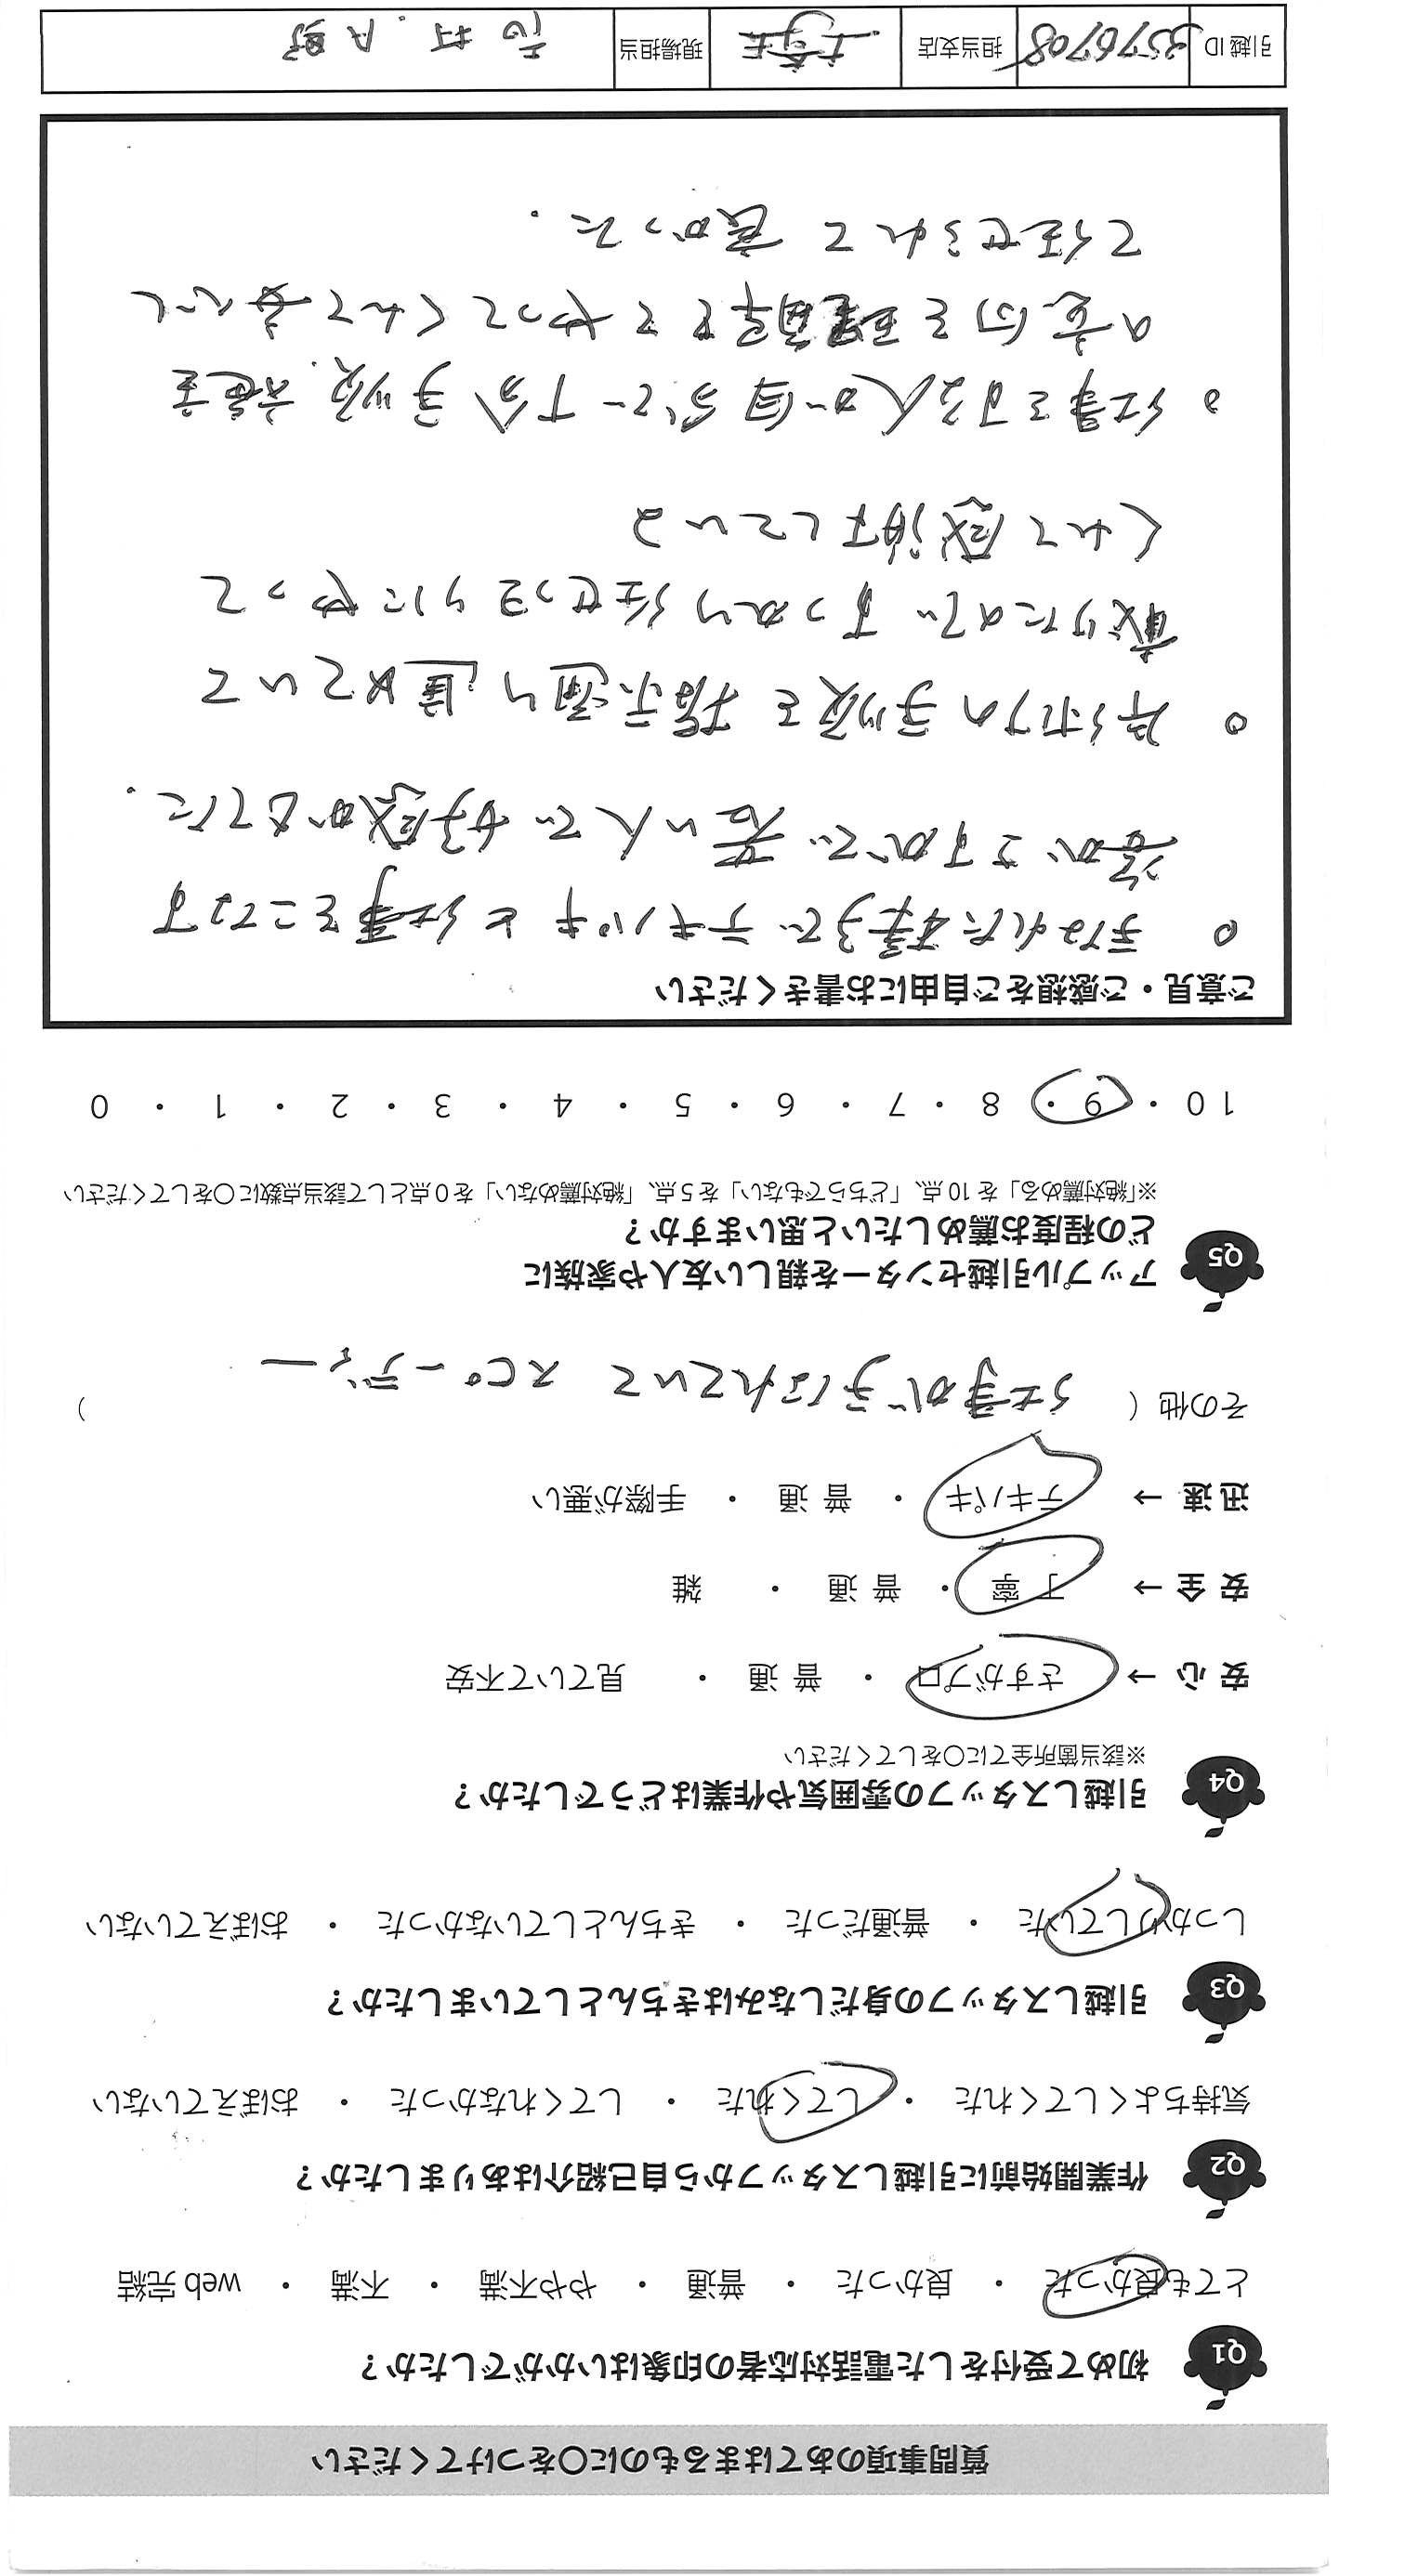 質問事項のあてはまるものに○をつけてください
Q1 初めて受付をした電話対応者の印象はいかがでしたか？
とても良かった ・ 良かった ・ 普通 ・ やや不満 ・ 不満 ・ web 完結
Q2 作業開始前に引越しスタッフから自己紹介はありましたか？
気持ちよくしてくれた ・ してくれた ・ してくれなかった ・ おぼえていない
Q3 引越しスタッフの身だしなみはきちんとしていましたか？
しっかりしていた ・ 普通だった ・ きちんとしていなかった ・ おぼえていない
Q4 引越しスタッフの雰囲気や作業はどうでしたか？
※該当箇所全てに○をしてください
安 心 → さすがプロ ・ 普 通 ・ 見ていて不安
安 全 → 丁 寧 ・ 普 通 ・ 雑
迅 速 → テキパキ ・ 普 通 ・ 手際が悪い
その他（ 仕事が手なれていて スピーディー ）
Q5 アップル引越センターを親しい友人や家族に
どの程度お薦めしたいと思いますか？
※「絶対薦める」を 10 点、「どちらでもない」を 5 点、「絶対薦めない」を 0 点として該当点数に○をしてください
10 ・ 9 ・ 8 ・ 7 ・ 6 ・ 5 ・ 4 ・ 3 ・ 2 ・ 1 ・ 0
ご意見・ご感想をご自由にお書きください
○ 手なれた様子で テキパキと仕事をこなす
姿が さすがで 若い人で 好感がもてた.
○ 片づけの手順を指示通り進めていて
戴けたので すっかり任せっきりにやって
くれて感謝している
○ 仕事をする人が自分で 十分 手順、
の意向を理解して やってくれて 安心し
て任せられて 良かった.
引越 ID 3576708 担当支店 現場担当